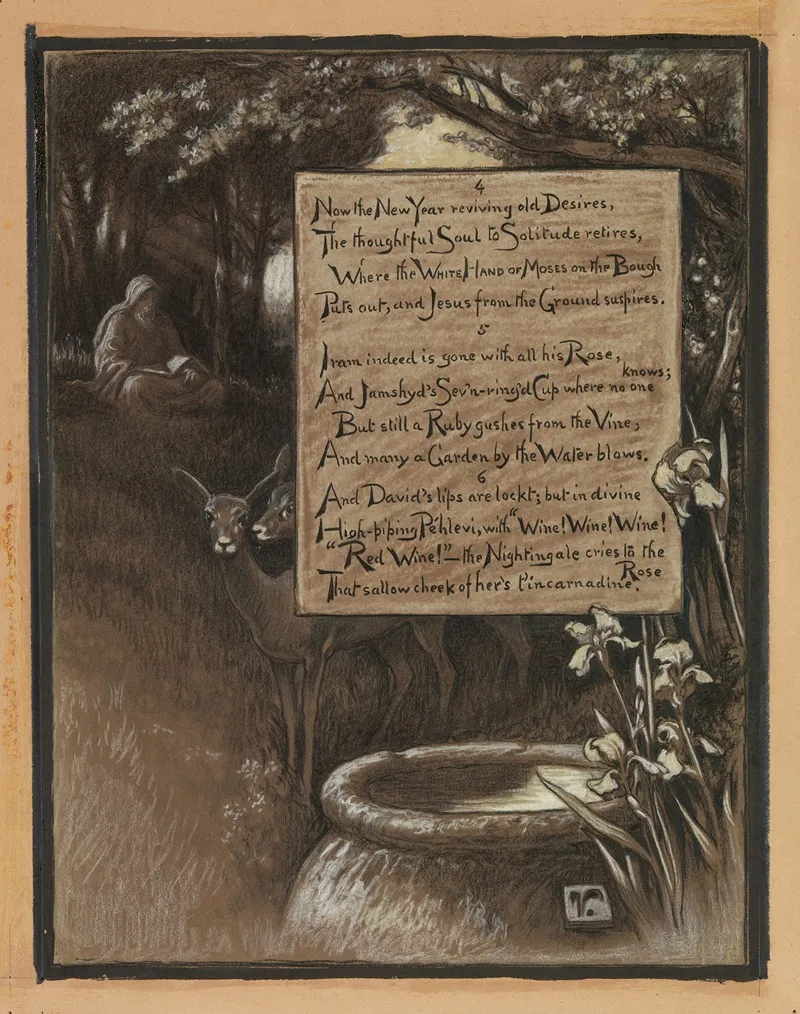 4
Now the New Year reviving old Desires,
The thoughtful Soul to Solitude retires,
Where the WHITE HAND OF MOSES on the Bough
Puts out, and Jesus from the Ground suspires.
5
Iram indeed is gone with all his Rose,
And Jamshyd's Sev'n-ring'd Cup where no one knows;
But still a Ruby gushes from the Vine,
And many a Garden by the Water blows.
6
And David's lips are lockt; but in divine
High-piping Péhlevi, with "Wine! Wine! Wine!
"Red Wine!"—the Nightingale cries to the Rose
That sallow cheek of her's t'incarnadine.